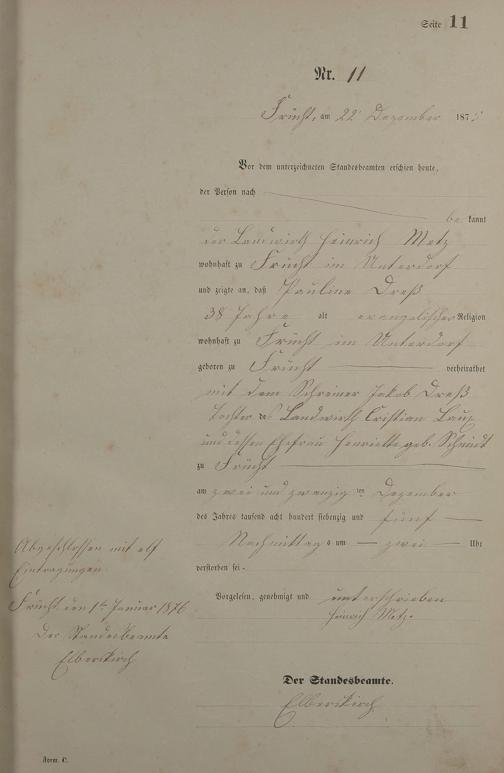 Seite 11
Nr. 11
Frücht, am 22 Dezember 1875
Vor dem unterzeichneten Standesbeamten erschien heute,
der Person nach
be kannt
der Landwirth Heinrich Metz
wohnhaft zu Frücht im Unterdorf
und zeigte an, daß Pauline Dreß
38 Jahre alt evangelischer Religion
wohnhaft zu Frücht im Unterdorf
geboren zu Frücht verheirathet
mit dem Schreiner Jakob Dreß
Tochter des Landwirth Cristian Laux
und dessen Ehefrau Henriette geb. Schmidt
zu Frücht
am zwei und zwanzig ten Dezember
des Jahres tausend acht hundert siebenzig und fünf
Nachmittag s um zwei Uhr
verstorben sei.
Vorgelesen, genehmigt und unterschrieben
Heinrich Metz.
Der Standesbeamte.
Abgeschlossen mit elf
Eintragungen.
Frücht, den 1ten Januar 1876
Der Standesbeamte
Form. C.